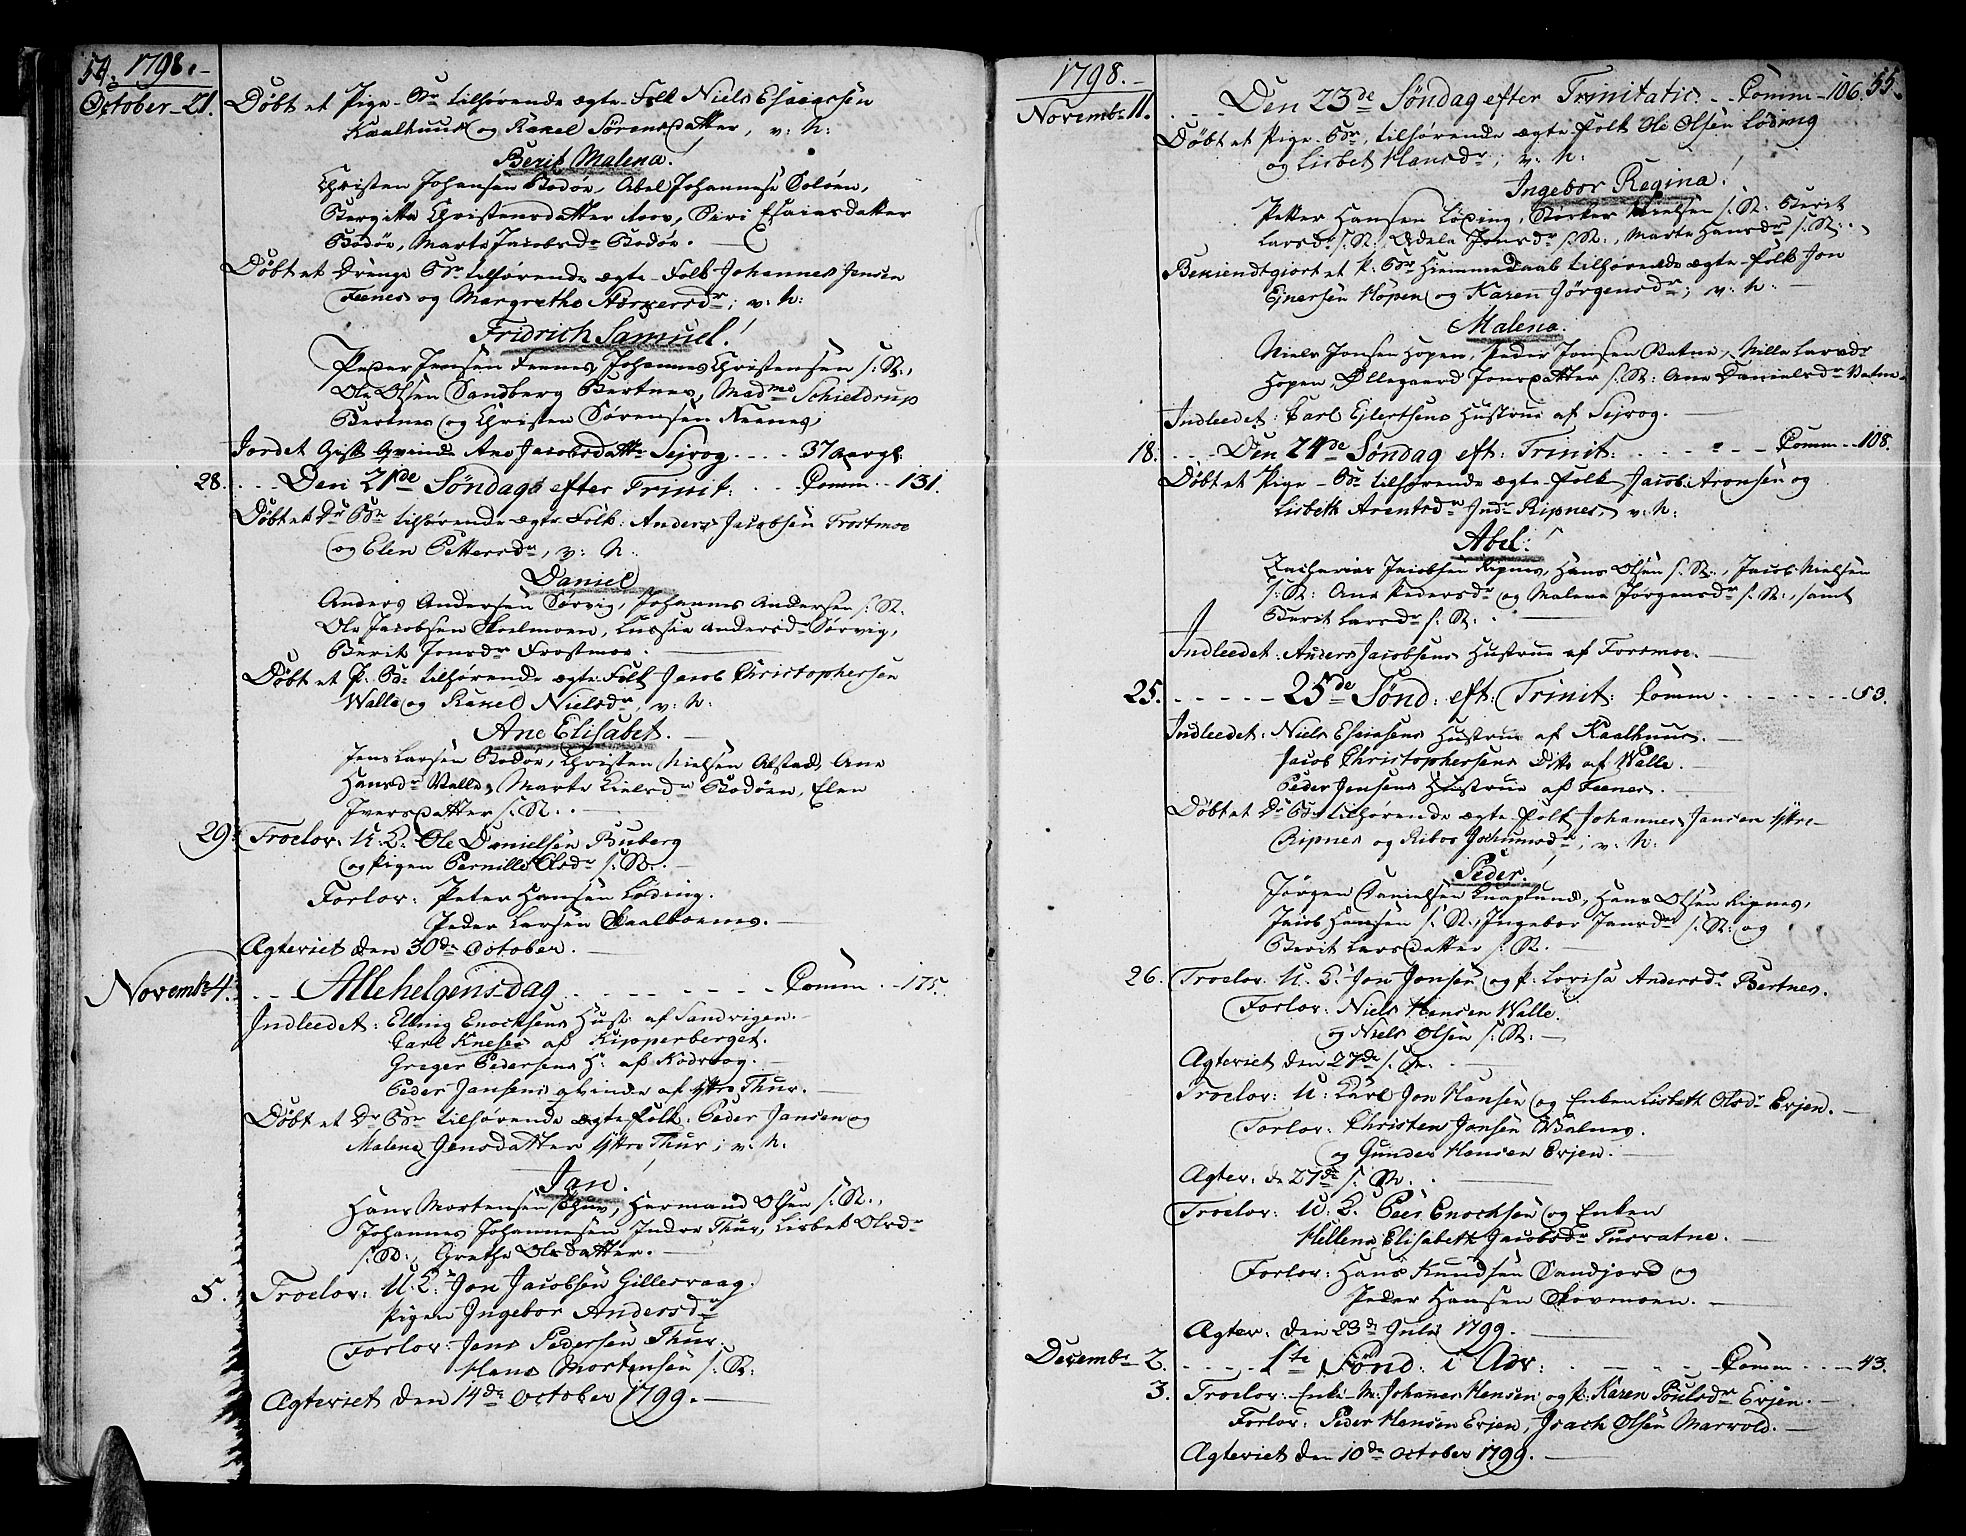 54. 1798.
October 21. Døbt et Pige-Bn tilhørende ægte-Folk Niels Esaiassen
Kaalhuus og Karel Sørensdatter, v: N:
Berit Malena.
Christen Johansen Bodøe, Abel Johannese Soløen,
Bergitta Christensdatter, Siri Esaiasdatter
Bodøe, Marte Jacobsdr Bodøe.
Døbt et Drenge Bn tilhørende ægte-Folk Johannes Jensen
Feenes og Margrethe; v: N:
Fridrich Samuel!
Peder Jensen Feenes, Johannes Christensen S: St:,
Ole Olsen Sandberg Bertnes, Madme Schieldrup
Bertnes og Christen Sørensen Neenes;
Jordet Gift Qvinde Ane Jacobsdattr Seivog.... 37 aar gl.
28. ... Den 21de Søndag efter Trinit: .. Comm .. 131.
Døbt et Dr Bn tilhørende ægte Folk: Anders Jacobsen Frostmoe
og Elen Pettersdr, v: N:
Daniel
Anders Andersen Sørvig, Johannes Andersen S: St.
Ole Jacobsen Skoelmoen, Lussia Andersdr Sørvig,
Berit Jonsdr Frostmoe.
Døbt et P: Bn tilhørende ægte Folk Jacob Christophersen
Walle og Karel Nielsdr, v: N:
Ane Elisabet.
Jens Larsen Bodøe, Christen Nielsen Alstad, Ane
Hansdr Valle, Marte Nielsdr Bodøen, Elen
Iversdatter S: St.
29. Troelov: U. K. Ole Danielsen Buberg
og Pigen Pernille Olsdr S: St.
Forlov: Peter Hansen Løding.
Peder Larsen Skaalboenes.
Ægteviet den 30de October.
Novembr 4. ... Allehelgens-dag ....... Comm .. 175.
Indleedet: Elling Enochsens Hust: af Sandvigen.
Carl Knesée af Kipperberget.
Greger Pedersens H: af Kodvaag.
Peder Jansens qvinde af Ytre Thuv.
Døbt et Dr Bn tilhørende ægte folk: Peder Jansen og
Malena Jensdatter Ytre Thuv; v. N.
Jan.
Hans Mortensen Thuv, Hermand Olsen S: St.,
Johannes Johannesen Indre Thuv, Lisbet Olsdr
S: St:, Grethe Olsdatter.
5. Troelov: U. K: Jon Jacobsen Gillesvaag.
Pigen Ingebor Andersdr
Forlov: Jens Pedersen Thuv.
Hans Mortensen S: St:
Ægteviet den 14de October 1799.
1798. 55.
Novembr 11. .... Den 23de Søndag efter Trinitatis. .. Comm - 106.
Døbt et Pige-Bn, tilhørende ægte folk Ole Olsen Løding
og Lisbet Hansdr; v: N:
Ingebor Regina!
Petter Hansen Løding, Nielsen S: St: Berit
Larsdr S: St:, Adela Jonsdr S: St:, Marte Hansdr S: St:.
Bekiendtgiort et P: Bn Hiemmedaab tilhørende ægte-folk Jon
Ejnersen Hopen og Karen Jørgensdr; v: N:
Malena.
Niels Jonsen Hopen, Peder Jonsen Vatne, Nille Larsdr
Hopen, Øllegaard Jonsdatter S: St: Ane Danielsdr Vatne.
Indleedet: Carl Ejlertsens Hustrue af Seivog.
18. ... Den 24de Søndag eft: Trinit: ...... Comm -- 108.
Døbt et Pige-Bn tilhørende ægte-folk Jacob Aronsen og
Lisbeth Arentsdr Indr Ripnes, v: N:
Abel!
Zacharias Jacobsen Ripnes, Hans Olsen S: St:, Jacob Nielsen
S: St: Ane Pedersdr og Malena Jørgensdr S: St:, samt
Berit Larsdr S: St:
Indleedet: Anders Jacobsens Hustrue af Forsmoe.
25. ------ 25de Sønd: eft: Trinit: Comm. ....... 53.
Indleedet: Niels Esaiasens Hustrue af Kaalhuus.
Jacob Christophersens Ditto af Walle.
Peder Jensens Hustrue af Feenes.
Døbt et Dr Bn tilhørende ægte folk Johannes Jansen Ytre
Ripnes og Jochumsdr; v: N:
Peder!
Jørgen Danielsen Knaplund, Hans Olsen Ripnes,
Jacob Hansen S: St:, Ingebor Jansdr S: St: og
Berit Larsdatter S: St.
26. Troelov. U. K: Jon Jonsen og P: Lovisa Andersdr Bertnes.
Forlov: Niels Hansen Walle.
og Niels Olsen S: St:
Ægteviet den 27de S: M:
Troelov: U: Karl Jon Hansen og Enken Lisbeth Olsdr Evjen.
Forlov: Christen Jonsen Valnes.
og Gunder Hansen Evjen.
Ægtev: de 27de S: M:
Troelov: U. K. Peer Enochsen og Enken
Hellena Elisabeth Jacobsdr Tusvatne.
Forlov: Hans Knudsen Sandjord og
Peder Hansen Skovmoen.
Ægtev: den 23de Julii 1799.
Decembr 2. ..... 1te Sønd: i Adv: . - - .. Comm .... 43.
3. Troelov: Enke-M: Johannes Hansen og P: Karen Poulsdr Evjen.
Forlov: Peder Hansen Evjen, Isach Olsen Marvold.
Ægteviet den 10de October 1799.